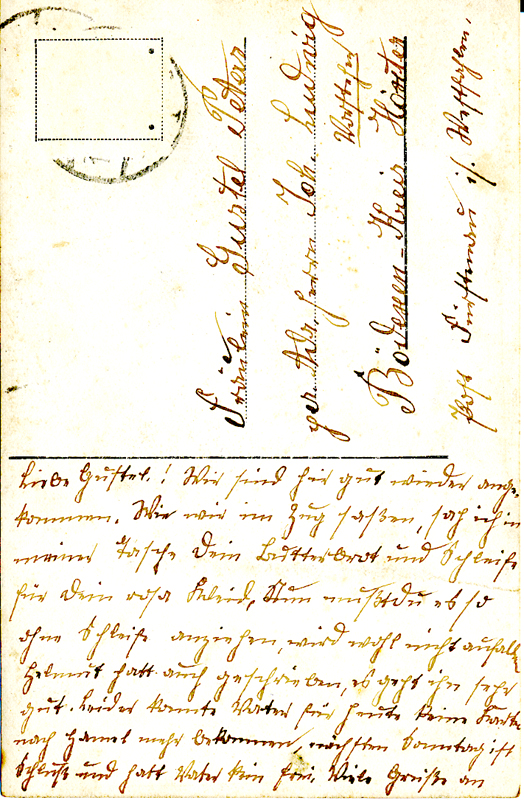 Fräulein Gustel Peters
per Adr. Herrn Joh. Ludwig
Vorsteher
Bödexen-Kreis Höxter
Post Fürstenau i/. Westfahlen.
Liebe Gustel.! Wir sind hir gut wieder ange-
kommen. Wie wir im Zug saßen, sah ich in
meiner Tasche Dein Butterbrot und Schleife
für Dein rosa Kleid, Nun mußt du es so
ohne Schleife anziehen, wird wohl nicht auffall
Helmut hatt auch geschrieben, es geht ihn sehr
gut. Leider konnte Vater für heute keine Karte
nach Hamel mehr bekommen, nächsten Sonntag ist
Schluß und hatt Vater kein frei. Viele Grüße an